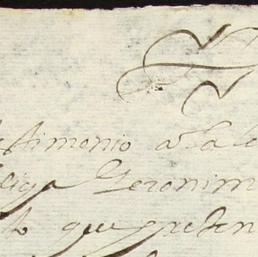 stimonio a la
liga Geronim
to que presen